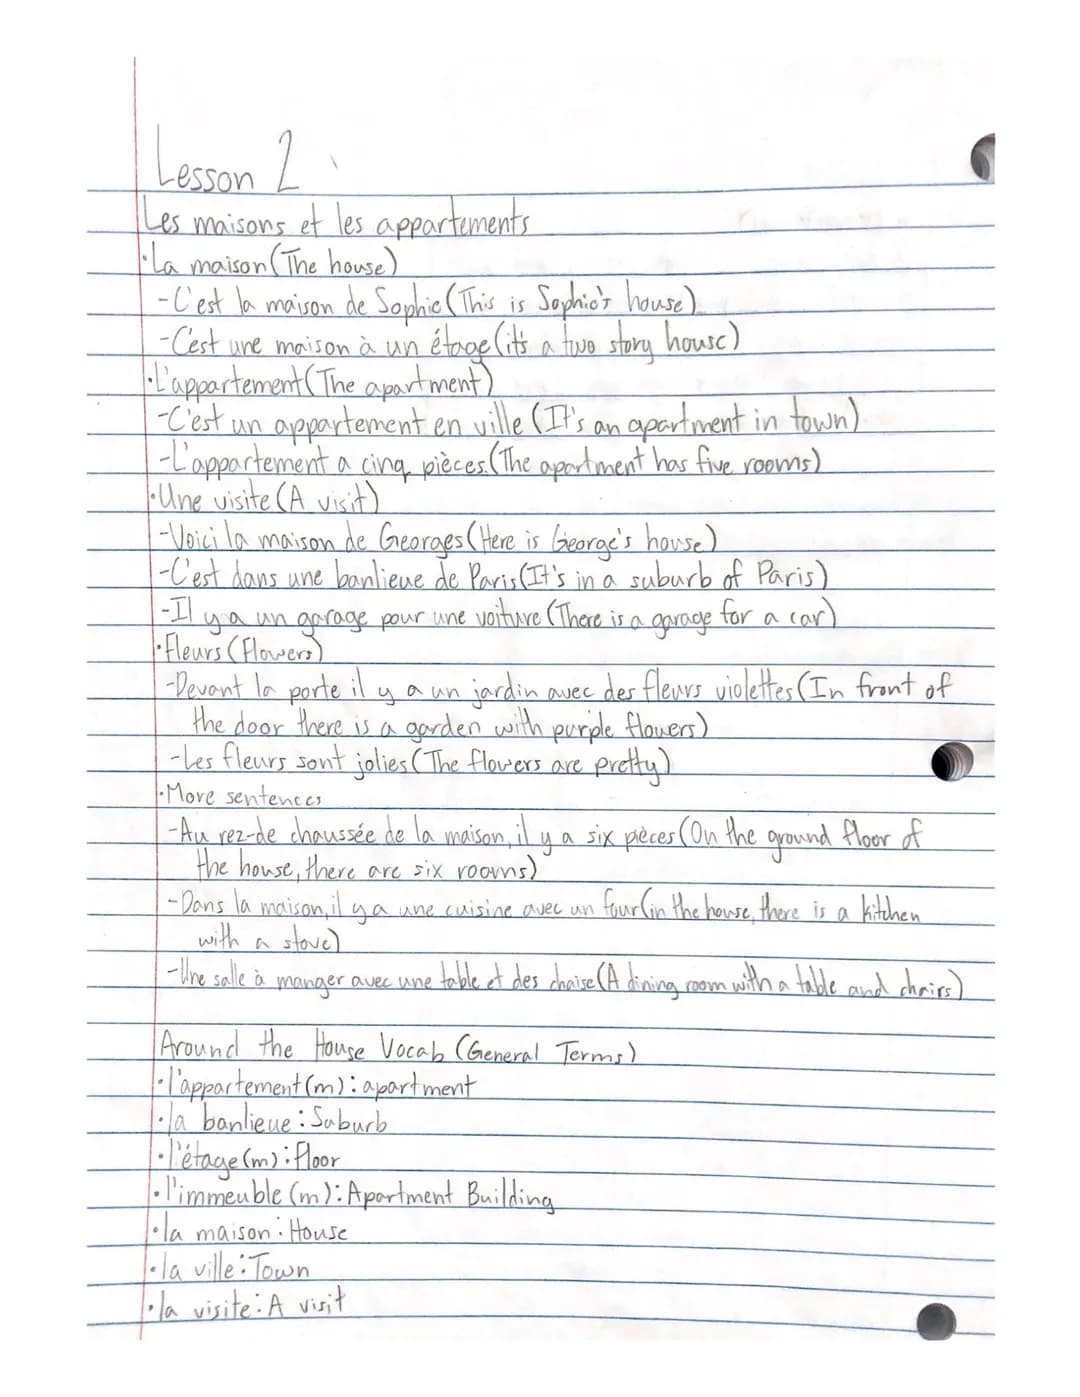 Lesson 2
Les maisons et les appartements
·La maison (The house)
-C'est la maison de Sophie (This is Sophie's house)
-C'est une maison à un étage (it's a two story house)
·L'appartement (The apartment)
-C'est un appartement en ville (It's an apartment in town)
-L'appartement a cinq pièces. (The apartment has five rooms)
·Une visite (A visit)
-Voici la maison de Georges (Here is George's house)
-C'est dans une banlieue de Paris (It's in a suburb of Paris)
-Il y a un garage pour une voiture (There is a garage for a car)
·Fleurs (Flowers)
-Devant la porte il y a un jardin avec des fleurs violettes (In front of
the door there is a garden with purple flowers)
-Les fleurs sont jolies (The flowers are pretty)
·More sentences
-Au rez-de chaussée de la maison, il y a six pièces (On the ground floor of
the house, there are six rooms)
-Dans la maison, il y a une cuisine avec un four (in the house, there is a kitchen
with a stove)
-Une salle à manger avec une table et des chaise (A dining room with a table and chairs)
Around the House Vocab (General Terms)
·l'appartement (m): apartment
·la banlieue: Suburb
·l'étage (m): floor
·l'immeuble (m): Apartment Building
·la maison: House
·la ville: Town
·la visite: A visit